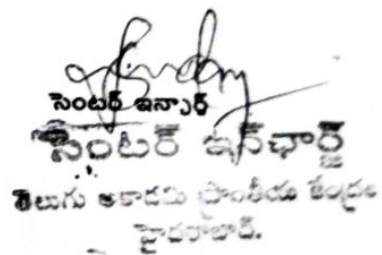 సెంటర్ ఇన్చార్
సెంటర్ ఇన్‌ఛార్జ్
తెలుగు అకాడమి ప్రాంతీయ కేంద్రం
హైదరాబాద్.